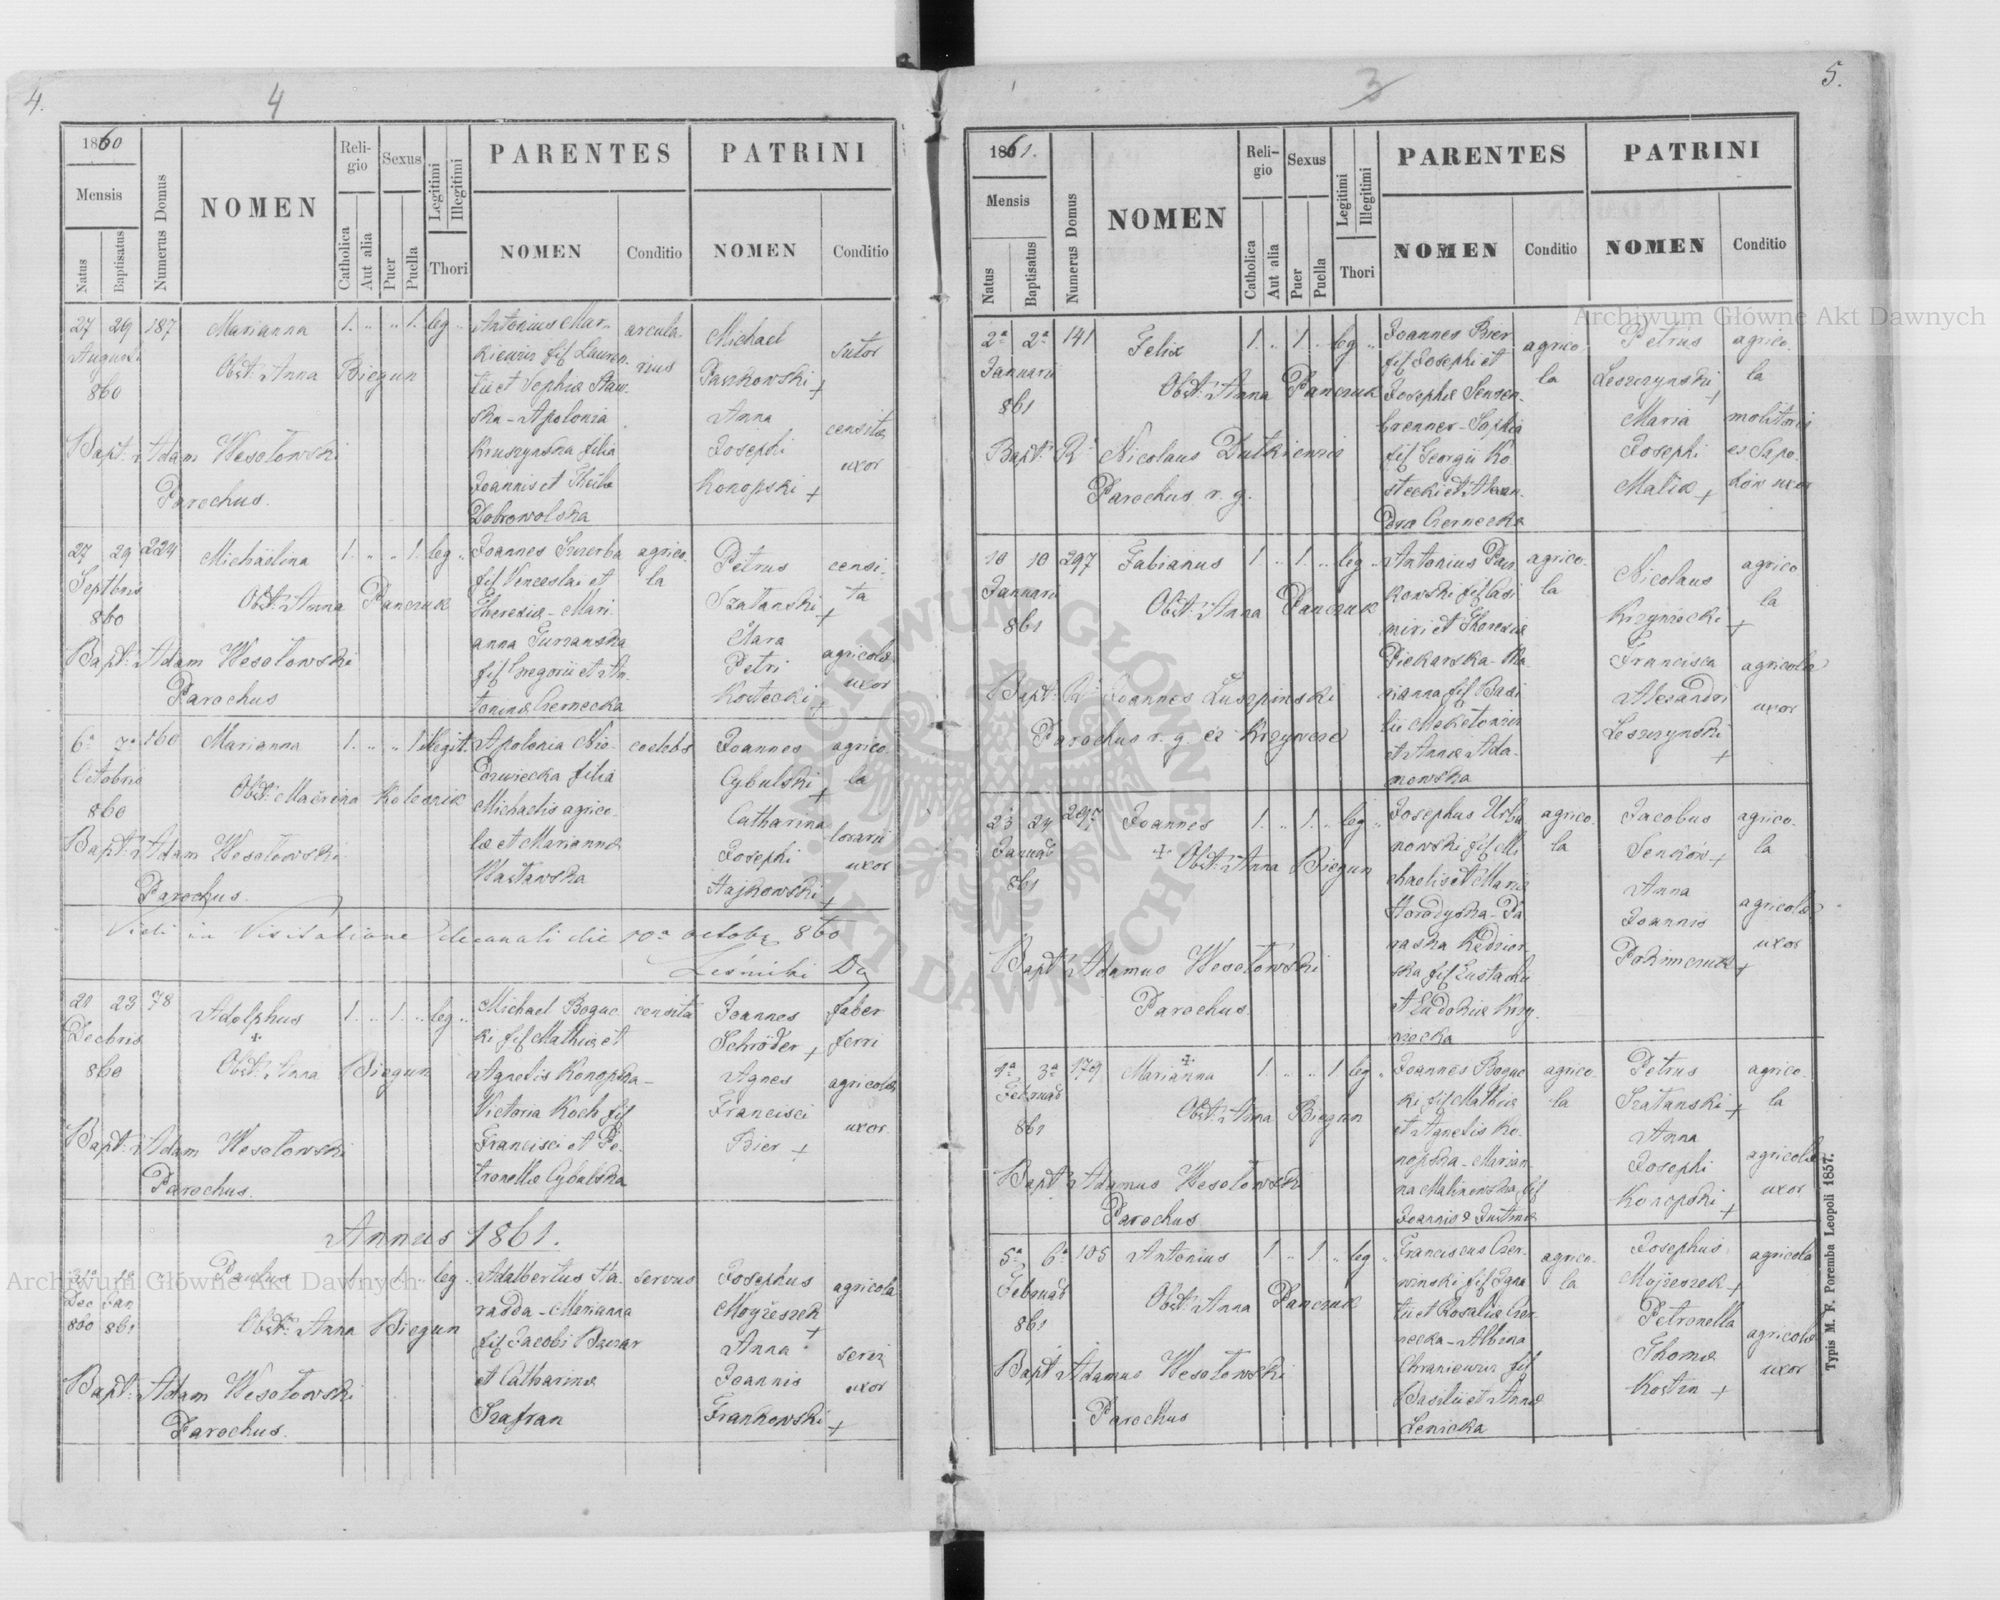 4.
4
1860
Mensis
Natus
Baptisatus
Numerus Domus
NOMEN
Religio
Catholica
Aut alia
Sexus
Puer
Puella
Legitimi
Illegitimi
Thori
PARENTES
NOMEN
Conditio
PATRINI
NOMEN
Conditio
27 29 187 Marianna 1. " " 1. leg "
Augusti
860
Obst. Anna Biegun
Bapt. Adam Wesołowski
Parochus.
Antonius Mar-
kiewicz fil Lauren-
tii et Sophia Staw-
ska - Apolonia
Kruszynska filia
Joannis et Theklæ
Dobrowolska
arcula-
rius
Michael
Paszkowski +
Anna
Josephi
Konopski +
sutor
censitæ
uxor
27 29 224 Michaëlina 1. " " 1. leg "
Septbris
860
Obst. Anna Panczuk
Bapt. Adam Wesołowski
Parochus
Joannes Szczerba
fil Venceslai et
Theresiæ - Mari-
anna Turzanska
fil Gregorii et An-
toninæ Czernecka
agrico-
la
Petrus
Szatanski +
Clara
Petri
Kostecki +
censi-
ta
agricolæ
uxor
6a 7a 160 Marianna 1. " " 1 illegit.
Octobris
860
Obst. Macrina Kolesnik
Bapt. Adam Wesołowski
Parochus.
Apolonia Nie-
dzwiecka filia
Michaelis agrico-
læ et Mariannæ
Wastawska
coelebs
Joannes
Cybulski +
Catharina
Josephi
Hajkowski +
agrico-
la
lorarii
uxor
Vidi in Visitatione decanali die 10a octobr 860
Leśnicki Dz
21 23 78 Adolphus 1. " 1. " leg "
Decbris
860
Obst. Anna Biegun
Bapt. Adam Wesołowski
Parochus.
Michael Boguc-
ki fil Mathiæ et
Agnetis Konopska -
Victoria Koch fil
Francisci et Pe-
tronellæ Cybulska
censita
Joannes
Schröder +
Agnes
Francisci
Bier +
faber
ferri
agricolæ
uxor.
Annus 1861.
31a 1a " Paulus 1. " 1. " leg "
Dec Jan
860 861
Obst. Anna Biegun
Bapt. Adam Wesołowski
Parochus.
Adalbertus Ha-
radda - Marianna
fil Jacobi Bazar
et Catharinæ
Szafran
servus
Josephus
Moyżeszek +
Anna
Joannis
Frankowski +
agricola
servi
uxor
3
5.
1861.
Mensis
Natus
Baptisatus
Numerus Domus
NOMEN
Religio
Catholica
Aut alia
Sexus
Puer
Puella
Legitimi
Illegitimi
Thori
PARENTES
NOMEN
Conditio
PATRINI
NOMEN
Conditio
2a 2a 141 Felix 1. " 1. " leg "
Januarii
861
Obst. Anna Panczuk
Bapt. R. Nicolaus Dutkiewicz
Parochus r. g.
Joannes Bier
fil Josephi et
Josephæ Sensen-
brenner - Sophia
fil Georgii Ko-
stecki et Alexan-
dræ Czernecka
agrico-
la
Petrus
Leszczynski +
Maria
Josephi
Malik +
agrico-
la
molitoris
ex Sapo-
ków uxor
10 10 297 Fabianus 1. " 1. " leg "
Januarii
861
Obst. Anna Panczuk
Bapt. R. Joannes Łusczpinski
Parochus r. g. ex Krzywcze
Antonius Pasz-
kowski fil Casi-
miri et Theresiæ
Piekarska - Ma-
rianna fil Basi-
lii Meketowicz
et Annæ Ada-
mowska
agrico-
la
Nicolaus
Krzyniecki +
Francisca
Alexandri
Leszczynski +
agrico-
la
agricolæ
uxor
23 24 297 Joannes 1. " 1. " leg "
Januar
861
Obst. Anna Biegun
Bapt. Adamus Wesołowski
Parochus.
Josephus Urba-
nowski fil Mi-
chaelis et Mariæ
Horodyska - Pa-
raska Kedzior-
ska fil Eustachii
et Eudokiæ Krzy-
niecka
agrico-
la
Jacobus
Senków +
Anna
Joannis
Pakimczuk +
agrico-
la
agricolæ
uxor
1a 3a 179 Marianna 1 " " 1 leg "
Februar
861
Obst. Anna Biegun
Bapt. Adamus Wesołowski
Parochus
Joannes Boguc-
ki fil Mathiæ
et Agnetis Ko-
nopska - Marian-
na Malinowska fil
Joannis & Justinæ
agrico-
la
Petrus
Szatanski +
Anna
Josephi
Konopski +
agrico-
la
agricolæ
uxor
5a 6a 105 Antonius 1 " 1 " leg "
Februar
861
Obst. Anna Panczuk
Bapt. Adamus Wesołowski
Parochus
Franciscus Czer-
winski fil Igna-
tii et Rosaliæ Czer-
necka - Albina
Chraniewicz fil
Basilii et Annæ
Lenicka
agrico-
la
Josephus
Mojżeszek +
Petronella
Thomæ
Kostin +
agricola
agricolæ
uxor
Typis M. F. Poremba Leopoli 1857.
Archiwum Główne Akt Dawnych
Archiwum Główne Akt Dawnych
ARCHIWUM GŁÓWNE AKT DAWNYCH